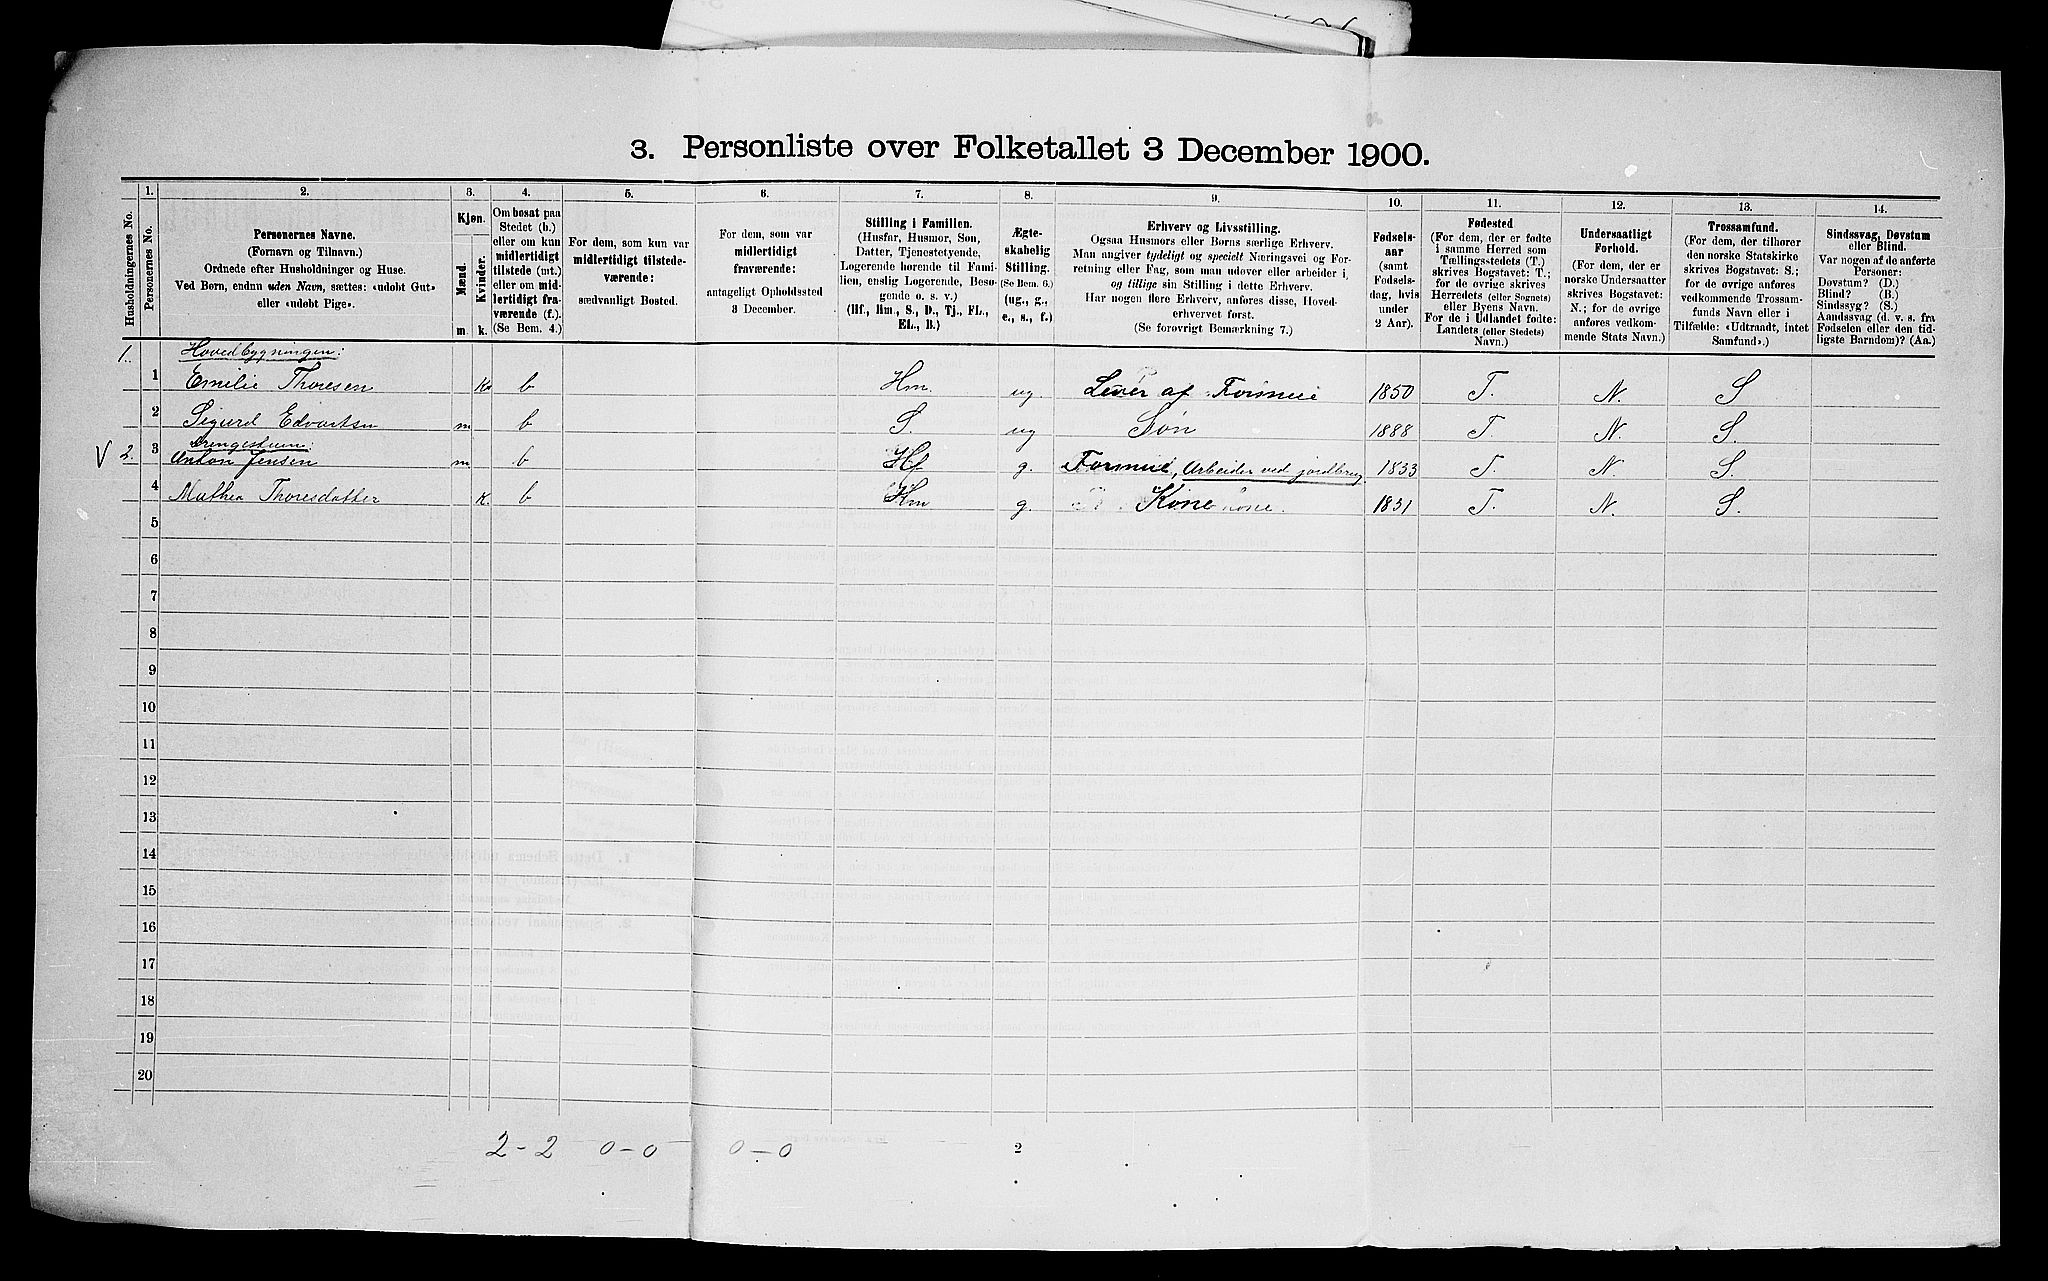 3. Personliste over Folketallet 3 December 1900.
Husholdningernes No.
1.
Personernes No.
2.
Personernes Navne.
(Fornavn og Tilnavn.)
Ordnede efter Husholdninger og Huse.
Ved Børn, endnu uden Navn, sættes: «udøbt Gut»
eller «udøbt Pige».
3.
Kjøn.
Mænd.
Kvinder.
m.
k.
4.
Om bosat paa
Stedet (b.)
eller om kun
midlertidigt
tilstede (mt.)
eller om mid-
lertidigt fra-
værende (f.).
(Se Bem. 4.)
5.
For dem, som kun var
midlertidigt tilstede-
værende:
sædvanligt Bosted.
6.
For dem, som var
midlertidigt
fraværende:
antageligt Opholdssted
3 December.
7.
Stilling i Familien.
(Husfar, Husmor, Søn,
Datter, Tjenestetyende,
Logerende hørende til Fami-
lien, enslig Logerende, Besø-
gende o. s. v.)
(Hf., Hm., S., D., Tj., FL.,
EL., B.)
8.
Ægte-
skabelig
Stilling.
(Se Bem. 6.)
(ug., g.,
e., s., f.)
9.
Erhverv og Livsstilling.
Ogsaa Husmors eller Børns særlige Erhverv.
Man angiver tydeligt og specielt Næringsvei og For-
retning eller Fag, som man udøver eller arbeider i,
og tillige sin Stilling i dette Erhverv.
Har nogen flere Erhverv, anføres disse, Hoved-
erhvervet først.
(Se forøvrigt Bemærkning 7.)
10.
Fødsels-
aar
(samt
Fødsels-
dag, hvis
under
2 Aar).
11.
Fødested
(For dem, der er fødte
i samme Herred som
Tællings-stedets (T.)
skrives Bogstavet: T.;
for de øvrige skrives
Herredets (eller Sognets)
eller Byens Navn.
For de i Udlandet fødte:
Landets (eller Stedets)
Navn.)
12.
Undersaatligt
Forhold.
(For dem, der er
norske Undersaatter
skrives Bogstavet:
N.; for de øvrige
anføres vedkom-
mende Stats Navn.)
13.
Trossamfund.
(For dem, der tilhører
den norske Statskirke
skrives Bogstavet: S.;
for de øvrige anføres
vedkommende Trossam-
funds Navn eller i
Tilfælde: «Udtraadt, intet
Samfund».)
14.
Sindssvag, Døvstum
eller Blind.
Var nogen af de anførte
Personer:
Døvstum? (D.)
Blind? (B.)
Sindssyg? (S.)
Aandssvag (d. v. s. fra
Fødselen eller den tid-
ligste Barndom)? (Aa.)
1. Hovedbygningen:
1 Emilie Thoresen K b Hm. ug. Lever af Formue 1850 T. N. S
2 Sigurd Edvartsen m b S. ug Søn 1888 T. N. S.
V 2. Drengestuen:
3 Anton Jensen m b Hf g. Formue, Arbeider ved jordbrug 1833 T. N. S.
4 Mathea Thoresdatter K. b Hm g. Kone 1831 T. N. S.
5
6
7
8
9
10
11
12
13
14
15
16
17
18
19
20
2-2 0-0 0-0 2